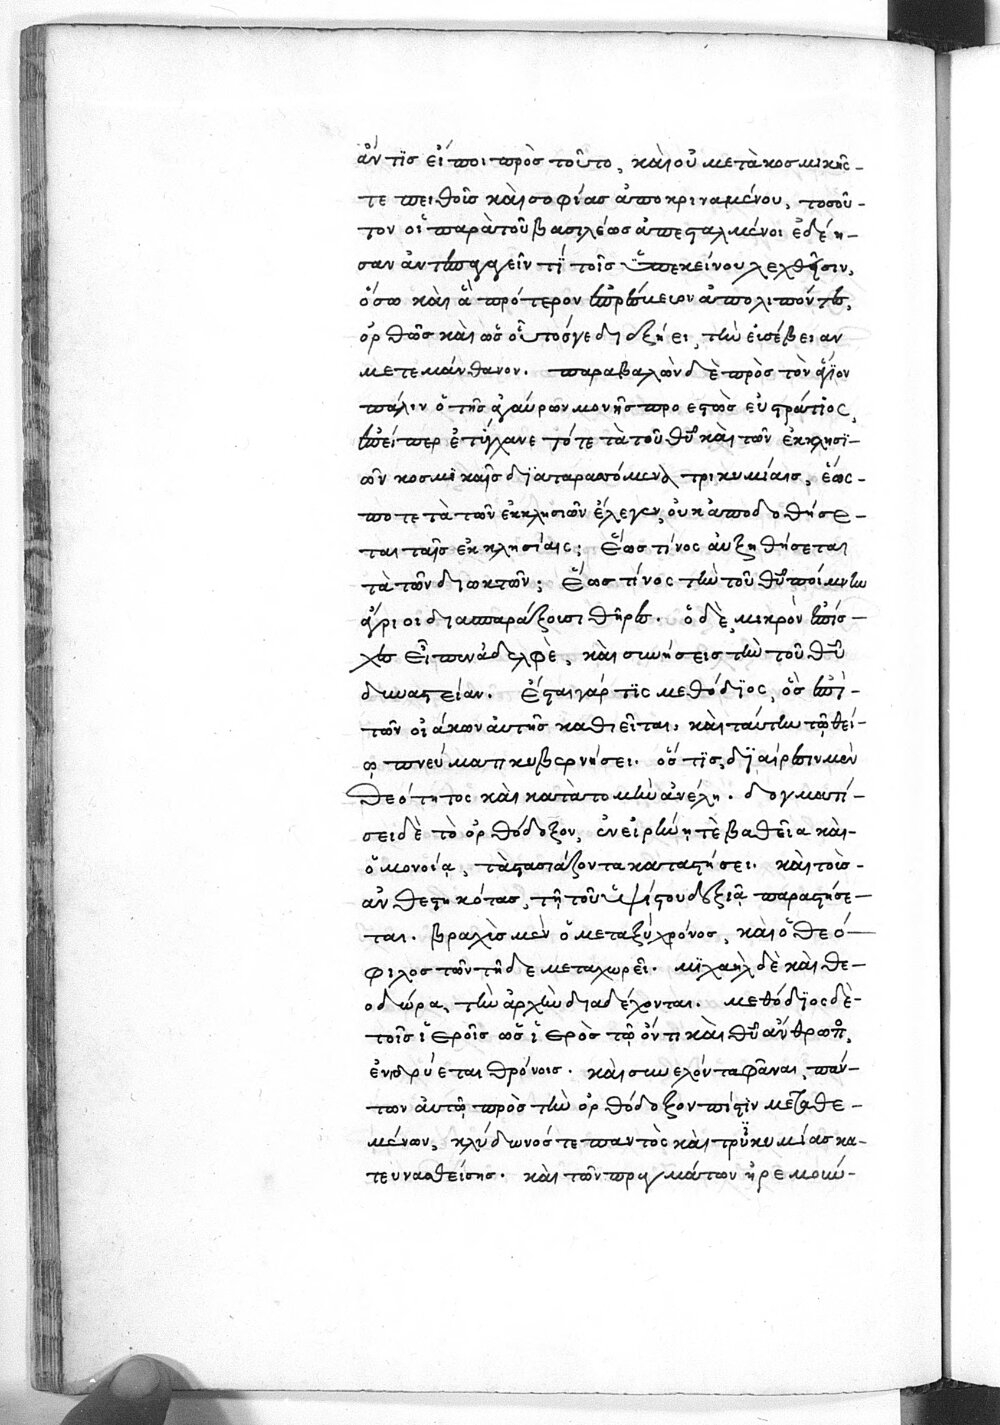 ἄν τις εἴποι πρὸς τοῦτο, καὶ οὐ μετὰ κοσμικῆς
τε πειθοῖς καὶ σοφίας ἀποκριναμένου, τοσοῦ-
τον οἱ παρὰ τοῦ βασιλέως ἀπεσταλμένοι ἐδέη-
σαν ἀντειπεῖν τι τοῖς ὑπ' ἐκείνου λεχθεῖσιν,
ὅσῳ καὶ ἃ πρότερον ἀπολιπόντες,
ὀρθῶς καὶ ὡς οὗτός γε διεξῄει, τὴν εὐσέβειαν
μετεμάνθανον. παραβαλὼν δὲ πρὸς τὸν ἅγιον
πάλιν ὁ τῆς ἀγαύρων μονῆς προεστὼς εὐστράτιος,
ἐπείπερ ἐτύγχανε τότε τὰ τοῦ θυ καὶ τῶν ἐκκλησι-
ῶν κοσμικαῖς διαταρασσόμενα τρικυμίαις, ἕως
ποτε τὰ τῶν ἐκκλησιῶν ἔλεγεν, οὐκ ἀποδοθήσε-
ται ταῖς ἐκκλησίαις; ἕως τίνος αὐξηθήσεται
τὰ τῶν διωκτῶν; ἕως τίνος τὴν τοῦ θυ ποίμνην
ἄγριοι διασπαράξουσι θῆρες. ὁ δὲ, μικρὸν ἐπίσ-
χες εἶπεν ἀδελφὲ, καὶ συνήσεις τὴν τοῦ θυ
δυναστείαν. ἔσται γάρ τις μεθόδιος, ὃς ἐπὶ
τῶν οἰάκων αὐτῆς καθιεῖται, καὶ ταύτην τῷ θεί-
ῳ πνεύματι κυβερνήσει. ὅς τις, διαίρεσιν μὲν
θεότητος καὶ κατὰ τομὴν ἀνέλῃ. δογματί-
σει δὲ τὸ ὀρθόδοξον, ἐν εἰρήνῃ τὲ βαθεῖα καὶ
ὁμονοίᾳ, τὰ στασιάζοντα καταστήσει. καὶ τοὺς
ἀνθεστηκότας, τῇ τοῦ ὑψίστου δεξιᾷ παραστήσε-
ται. βραχὺς μὲν ὁ μεταξὺ χρόνος, καὶ ὁ θεό-
φιλος τῶν τῇδε μεταχωρεῖ. μιχαὴλ δὲ καὶ θε-
οδώρα, τὴν ἀρχὴν διαδέχονται. μεθόδιος δὲ
τοῖς ἱεροῖς ὡς ἱερὸς τῷ ὄντι καὶ θυ ἄνθρωπος,
ἐνιδρύεται θρόνοις. καὶ συνελόντα φᾶναι, πάν-
των αὐτῷ πρὸς τὴν ὀρθόδοξον πίστιν μεταθε-
μένων, κλύδωνός τε παντὸς καὶ τρικυμίας κα-
τευνασθείσης. καὶ τῶν πραγμάτων ἠρεμούν-